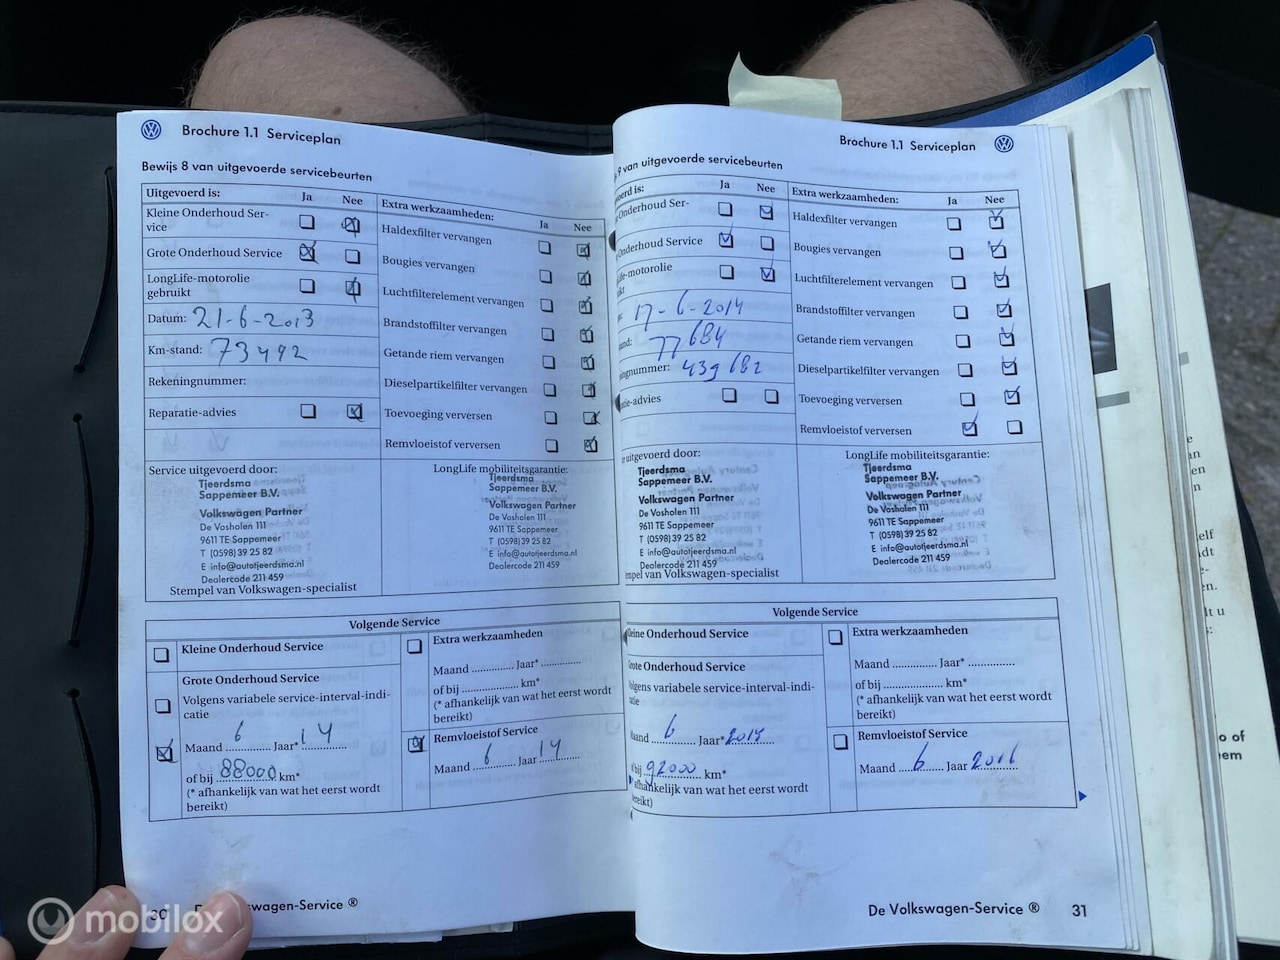 Brochure 1.1 Serviceplan
Bewijs 8 van uitgevoerde servicebeurten
Uitgevoerd is: Ja Nee
Kleine Onderhoud Ser-
vice
Grote Onderhoud Service
LongLife-motorolie
gebruikt
Datum: 21-6-2013
Km-stand: 73492
Rekeningnummer:
Reparatie-advies
Extra werkzaamheden: Ja Nee
Haldexfilter vervangen
Bougies vervangen
Luchtfilterelement vervangen
Brandstoffilter vervangen
Getande riem vervangen
Dieselpartikelfilter vervangen
Toevoeging verversen
Remvloeistof verversen
Service uitgevoerd door:
Tjeerdsma
Sappemeer B.V.
Volkswagen Partner
De Vosholen 111
9611 TE Sappemeer
T (0598) 39 25 82
E info@autotjeerdsma.nl
Dealercode 211 459
Stempel van Volkswagen-specialist
LongLife mobiliteitsgarantie:
Tjeerdsma
Sappemeer B.V.
Volkswagen Partner
De Vosholen 111
9611 TE Sappemeer
T (0598) 39 25 82
E info@autotjeerdsma.nl
Dealercode 211 459
Volgende Service
Kleine Onderhoud Service
Grote Onderhoud Service
Volgens variabele service-interval-indi-
catie
Maand 6 Jaar* 14
of bij 88000 km*
(* afhankelijk van wat het eerst wordt
bereikt)
Extra werkzaamheden
Maand .............. Jaar* .............
of bij .................... km*
(* afhankelijk van wat het eerst wordt
bereikt)
Remvloeistof Service
Maand 6 Jaar 14
30 De Volkswagen-Service ®
Brochure 1.1 Serviceplan
9 van uitgevoerde servicebeurten
voerd is: Ja Nee
Onderhoud Ser-
Onderhoud Service
Life-motorolie
17-6-2014
77684
ngnummer: 439682
tie-advies
Extra werkzaamheden: Ja Nee
Haldexfilter vervangen
Bougies vervangen
Luchtfilterelement vervangen
Brandstoffilter vervangen
Getande riem vervangen
Dieselpartikelfilter vervangen
Toevoeging verversen
Remvloeistof verversen
uitgevoerd door:
Tjeerdsma
Sappemeer B.V.
Volkswagen Partner
De Vosholen 111
9611 TE Sappemeer
T (0598) 39 25 82
E info@autotjeerdsma.nl
Dealercode 211 459
tempel van Volkswagen-specialist
LongLife mobiliteitsgarantie:
Tjeerdsma
Sappemeer B.V.
Volkswagen Partner
De Vosholen 111
9611 TE Sappemeer
T (0598) 39 25 82
E info@autotjeerdsma.nl
Dealercode 211 459
Volgende Service
leine Onderhoud Service
Grote Onderhoud Service
olgens variabele service-interval-indi-
catie
aand 6 Jaar* 2015
of bij 92000 km*
* afhankelijk van wat het eerst wordt
ereikt)
Extra werkzaamheden
Maand .............. Jaar* .............
of bij .................... km*
(* afhankelijk van wat het eerst wordt
bereikt)
Remvloeistof Service
Maand 6 Jaar 2016
De Volkswagen-Service ® 31
mobilox